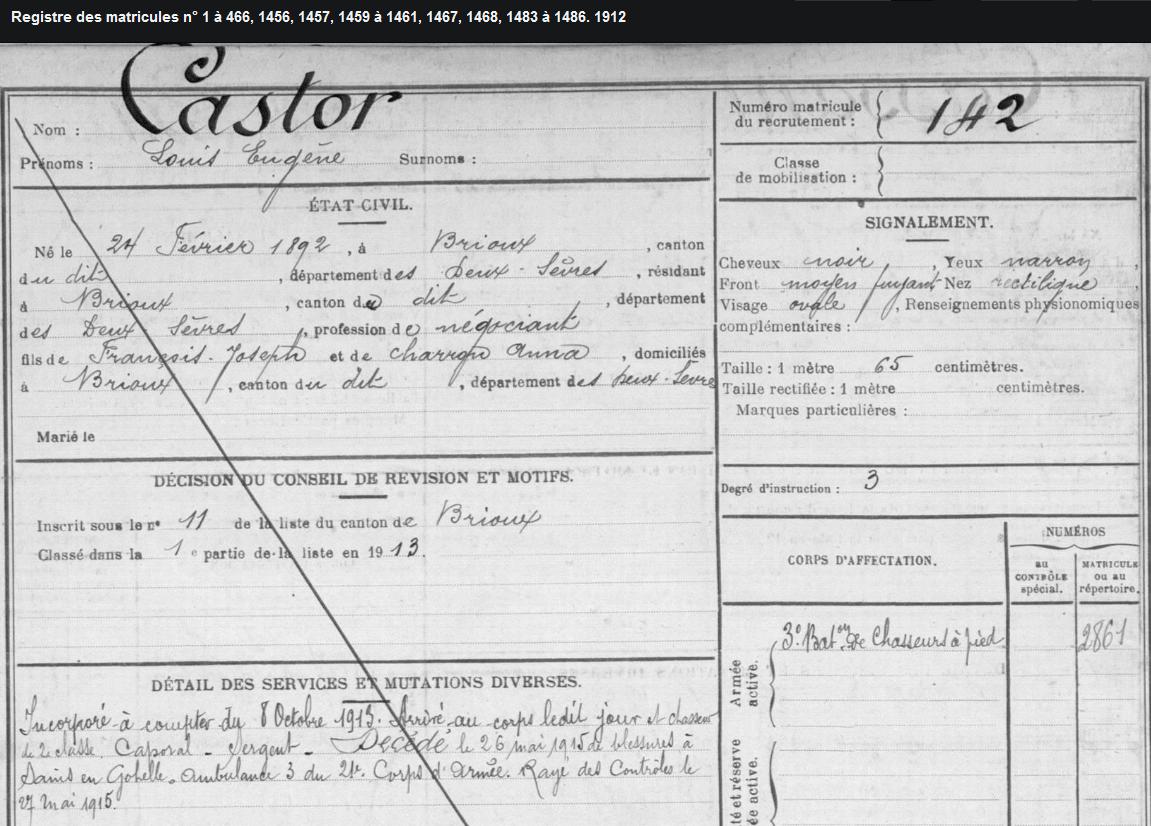 Registre des matricules n° 1 à 466, 1456, 1457, 1459 à 1461, 1467, 1468, 1483 à 1486. 1912
Nom : Castor
Prénoms : Louis Eugène Surnoms :
ÉTAT CIVIL.
Né le 24 Février 1892, à Brioux, canton
du dit, département des Deux-Sèvres, résidant
à Brioux, canton du dit, département
des Deux Sèvres, profession de négociant
fils de François-Joseph et de Charron Anna, domiciliés
à Brioux, canton du dit, département des Deux-Sèvres
Marié le
DÉCISION DU CONSEIL DE REVISION ET MOTIFS.
Inscrit sous le n° 11 de la liste du canton de Brioux
Classé dans la 1e partie de la liste en 1913.
DÉTAIL DES SERVICES ET MUTATIONS DIVERSES.
Incorporé à compter du 8 Octobre 1913. Arrivé au corps ledit jour et chasseur
de 2e classe. Caporal - Sergent - Décédé le 26 mai 1915 de blessures à
Sains en Gohelle. ambulance 3 du 21e Corps d'Armée. Rayé des Contrôles le
27 mai 1915.
Numéro matricule
du recrutement : 142
Classe
de mobilisation :
SIGNALEMENT.
Cheveux noir, Yeux marron,
Front moyen fuyant Nez rectiligne,
Visage ovale, Renseignements physionomiques
complémentaires :
Taille : 1 mètre 65 centimètres.
Taille rectifiée : 1 mètre centimètres.
Marques particulières :
Degré d'instruction : 3
CORPS D'AFFECTATION.
NUMÉROS
au
CONTRÔLE
spécial.
MATRICULE
ou au
répertoire.
Armée
active.
3e Baton de Chasseurs à pied 2861
té et réserve
ée active.